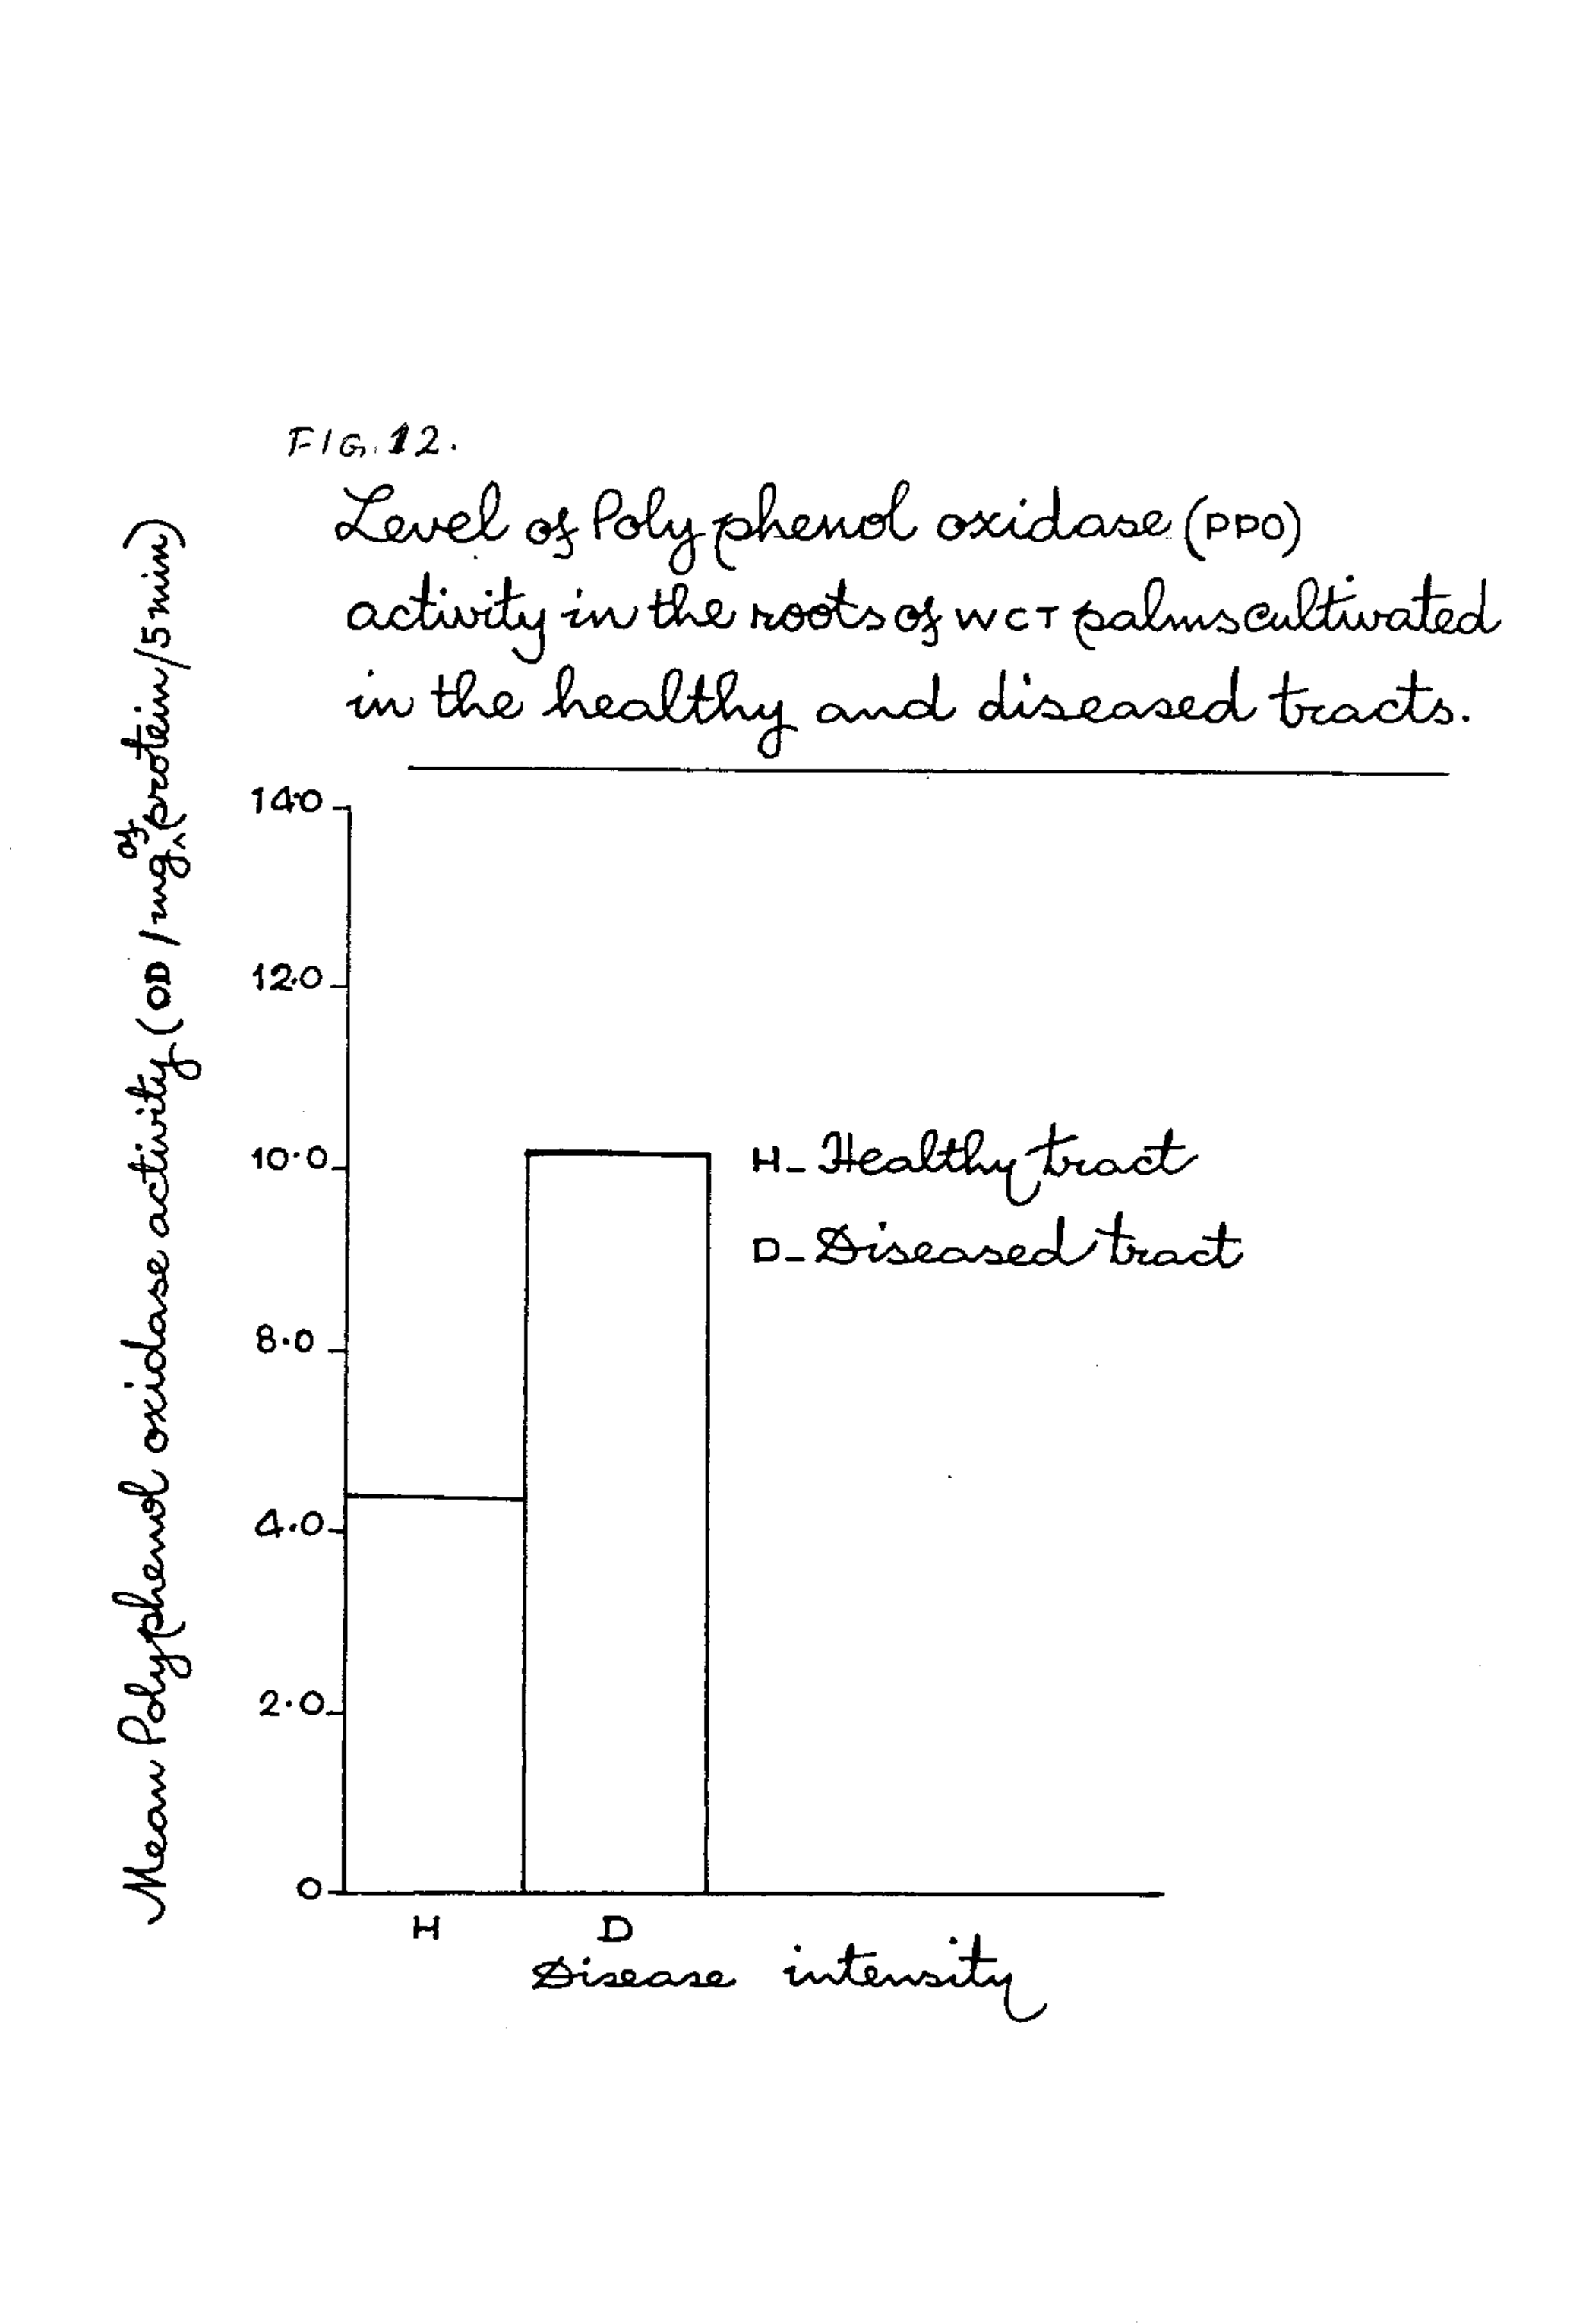 FIG. 12.
Level of Poly phenol oxidase (PPO)
activity in the roots of WCT palms cultivated
in the healthy and diseased tracts.
Mean Polyphenol oxidase activity (OD / mg of protein / 5 min)
14.0
12.0
10.0
8.0
4.0
2.0
0
H - Healthy tract
D - Diseased tract
H D
Disease intensity